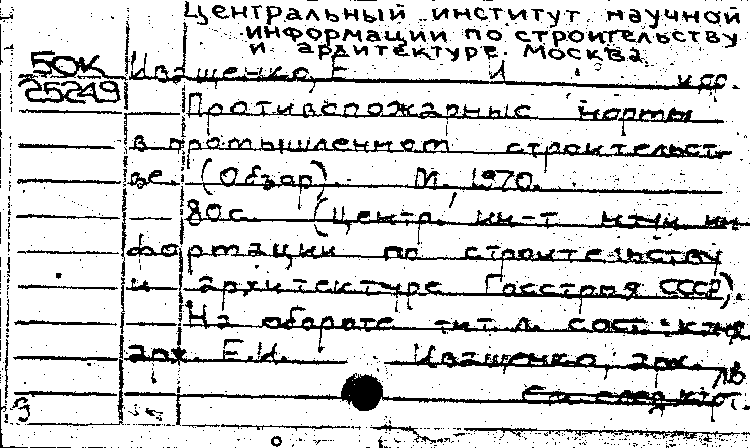 Центральный институт научной
информации по строительству
и архитектуре. Москва
50К Иващенко, Е. И. и др.
25249
Противопожарные нормы
в промышленном строительст-
ве. (Обзор). М. 1970.
80с. (Центр. ин-т научн. ин-
формации по строительству
и архитектуре Госстроя СССР).
На обороте тит. л. сост.:
арх. Е.И. Иващенко, арх.
См. след. карт.